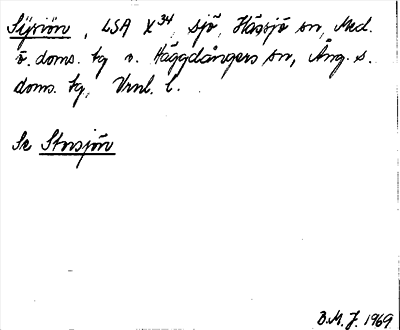 Sysiön, LSA X34, sjö, Hässjö sn, Med.
ö. doms. tg o. Häggdångers sn, Ång. s.
doms. tg, Vrnl. l.
Se Storsjön
B.M.J. 1969